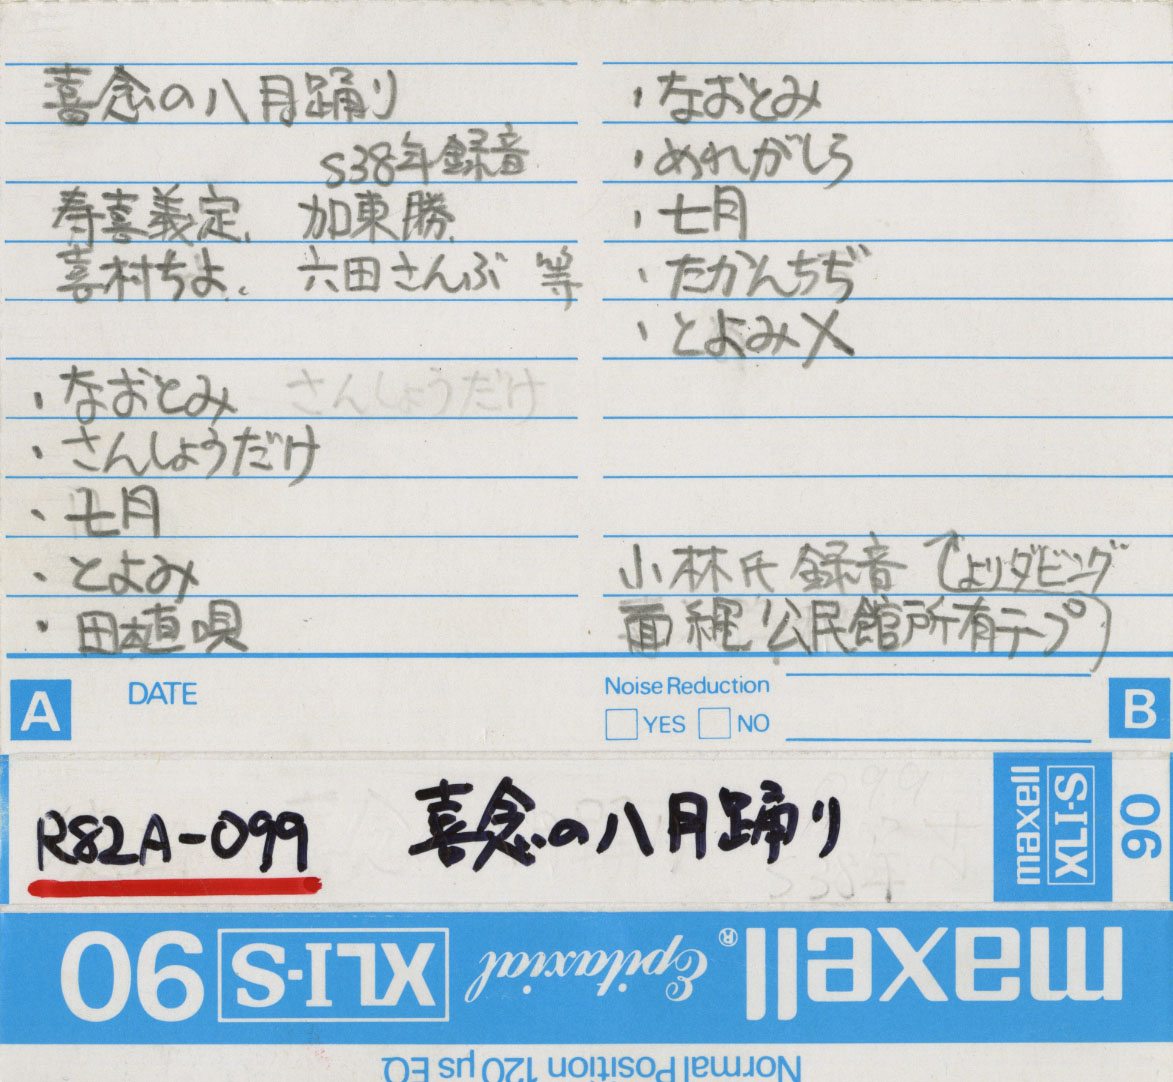 喜念の八月踊り
S38年録音
寿喜義定、 加東勝、
喜村ちよ、 六田さんぶ 等
・なおとみ さんしょうだけ
・さんしょうだけ
・七月
・とよみ
・田植唄
・なおとみ
・めれがしら
・七月
・たかんちぢ
・とよみ〆
小林氏 録音
よりダビング
面縄公民館所有テープ)
A
DATE
Noise Reduction
YES NO
B
R82A-099
喜念の八月踊り
maxell
XLI-S
90
maxell® Epitaxial XLI-S 90
Normal Position 120 μs EQ